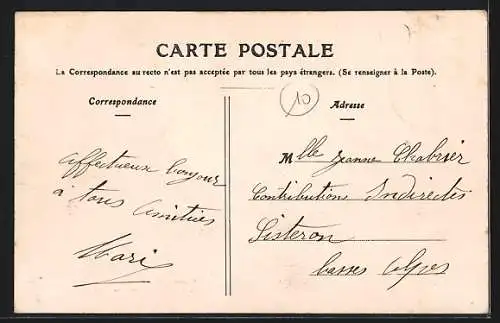 CARTE POSTALE
La Correspondance au recto n'est pas acceptée par tous les pays étrangers. (Se renseigner à la Poste).
Correspondance
affectueux bonjour
à tous amitiés
Mari
10
Adresse
Mlle Jeanne Chabrier
Contributions Indirectes
Sisteron
basses Alpes